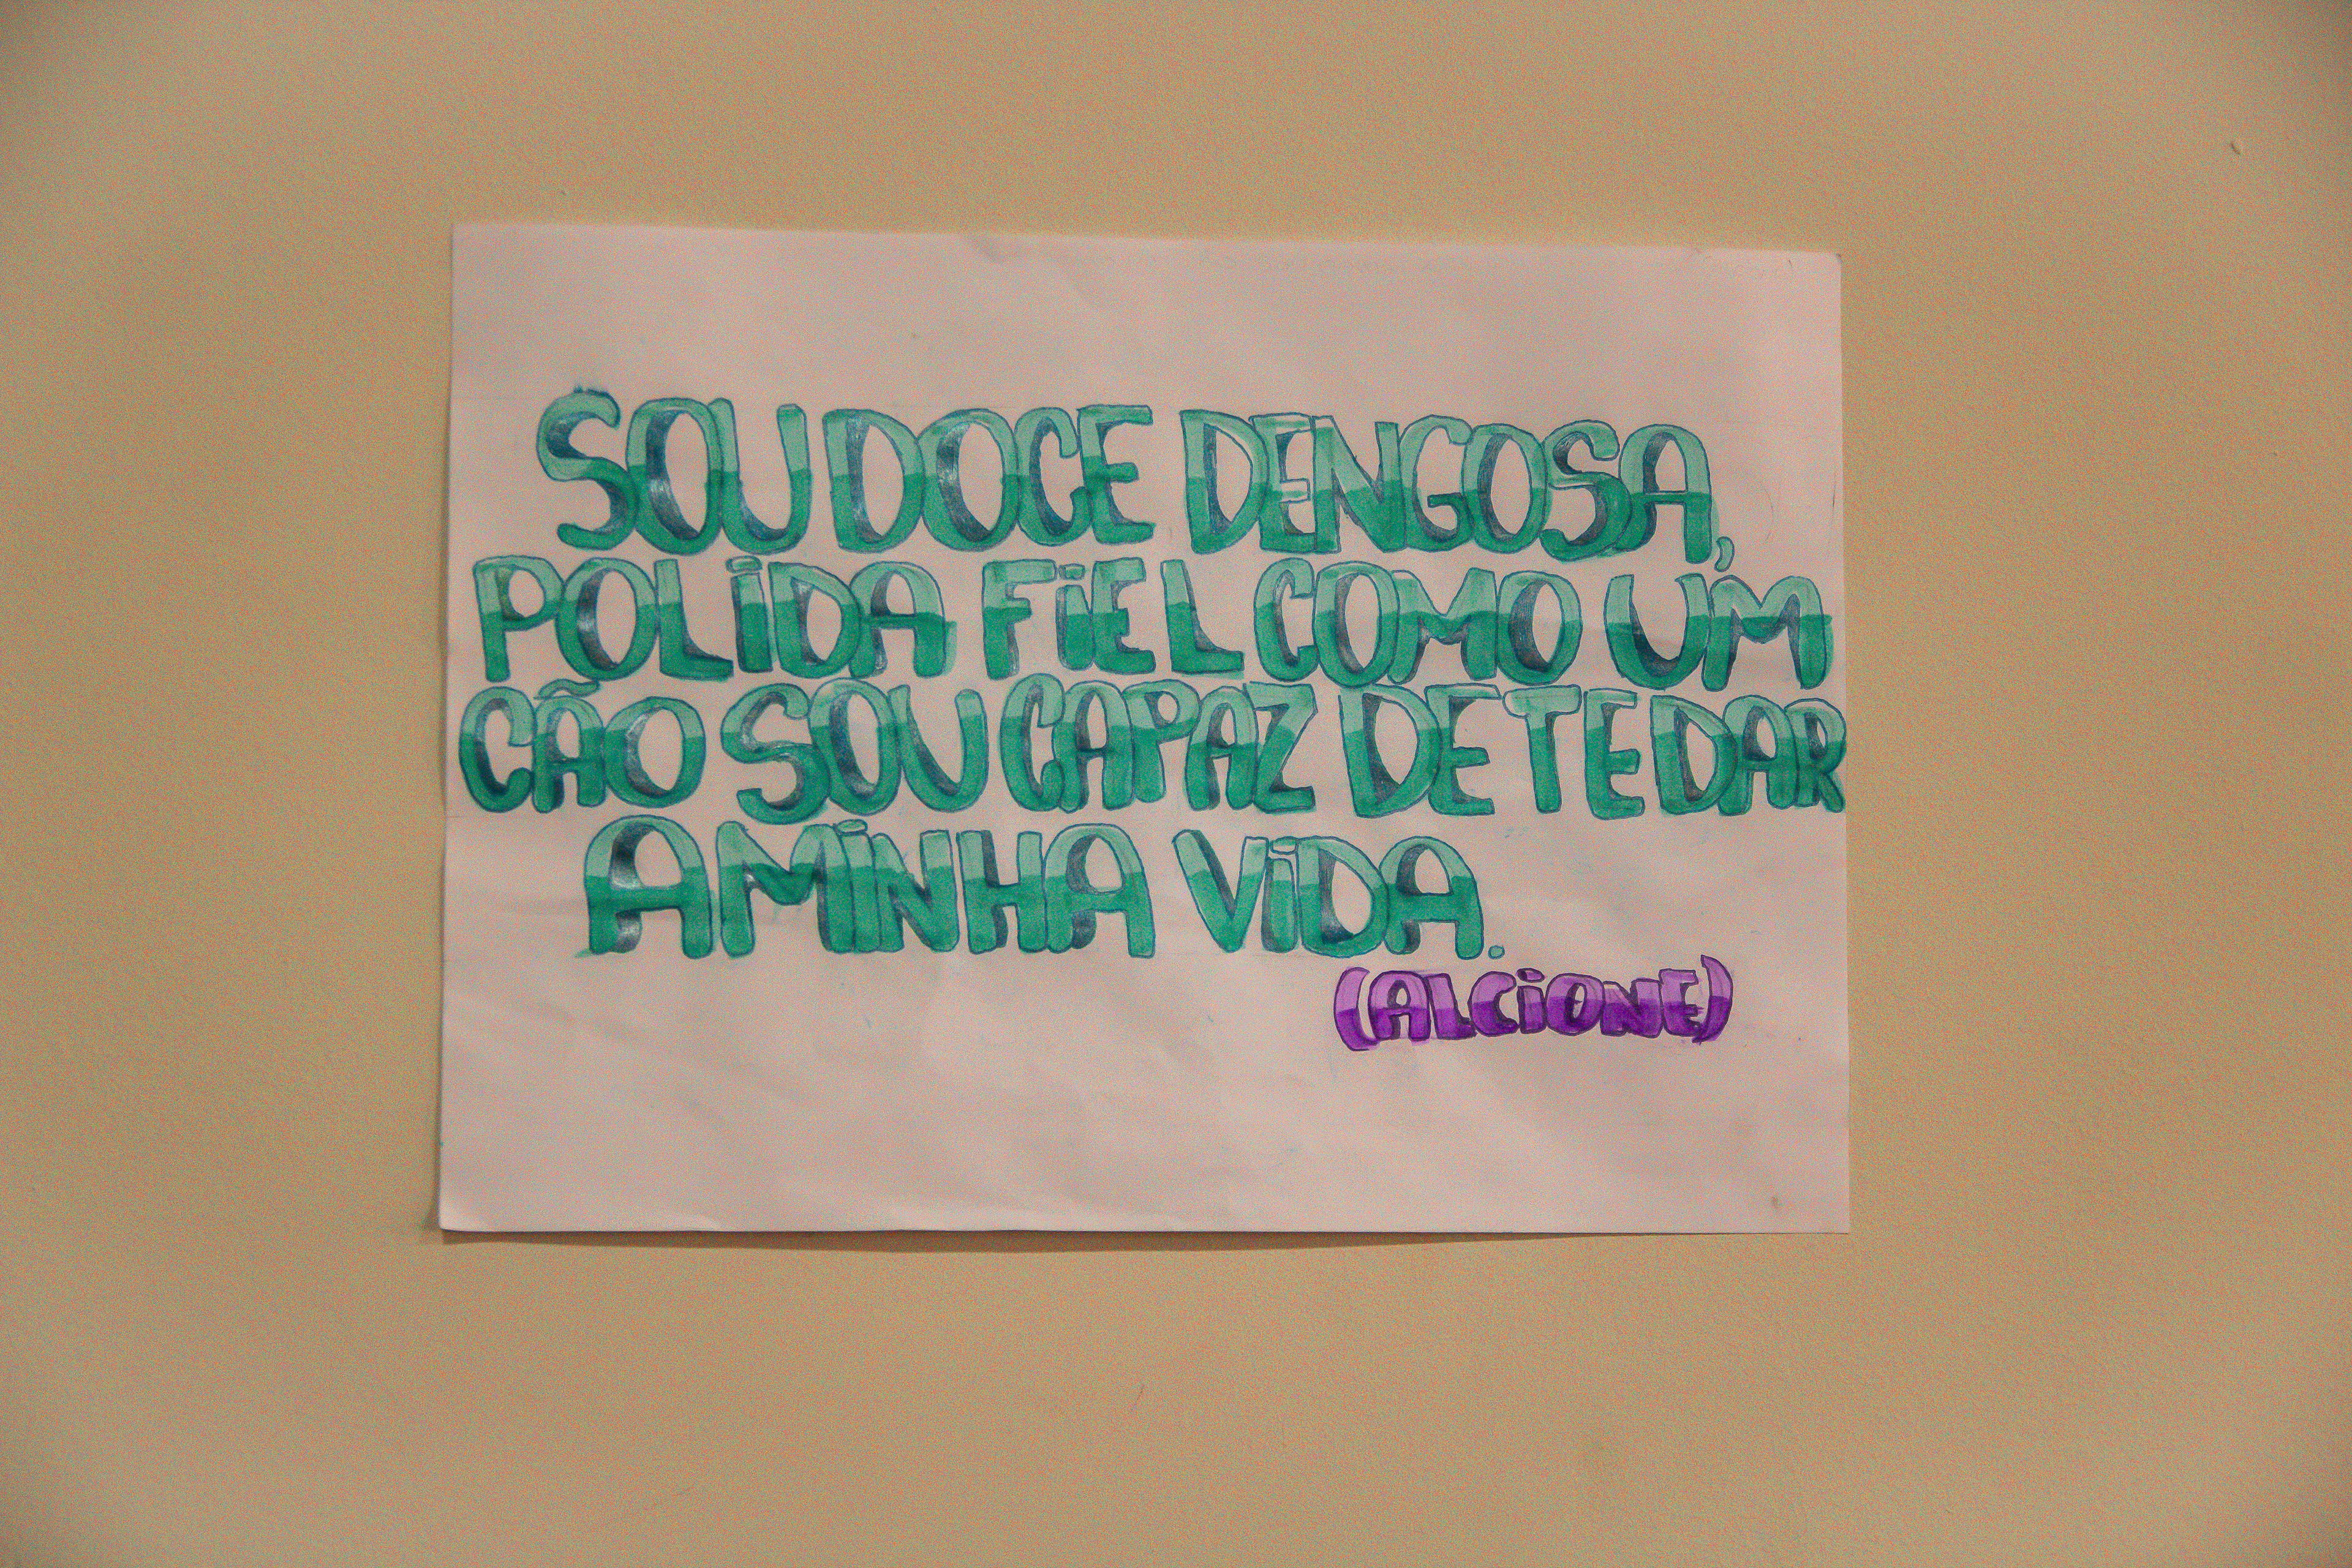 SOU DOCE DENGOSA,
POLIDA FIEL COMO UM
CÃO SOU CAPAZ DE TE DAR
A MINHA VIDA.
(ALCIONE)